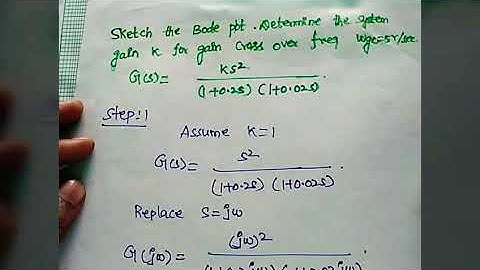 Sketch the Bode plot. Determine the system
gain K for gain cross over freq wgc=5r/sec.
G(s)= ks² / (1+0.2s) (1+0.02s).
Step:1
Assume K=1
G(s)= s² / (1+0.2s) (1+0.02s).
Replace s=jω
G(jω) = (jω)²